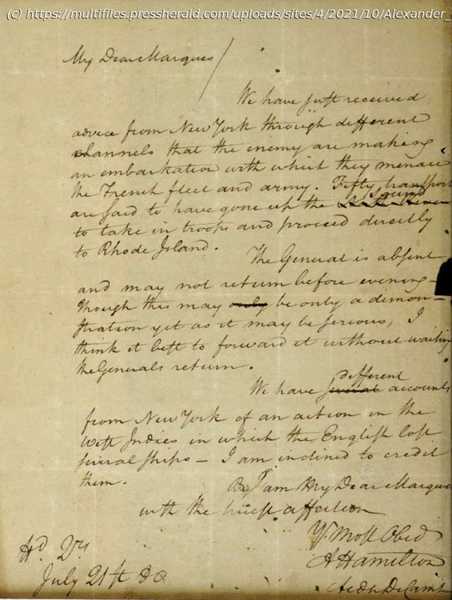 (c) https://multifiles.pressherald.com/uploads/sites/4/2021/10/Alexander_
My Dear Marquis/
We have just received
advice from New York through different
channels that the enemy are making
an embarkation with which they menace
the French fleet and army. Fifty transports
are said to have gone up the Sound
to take in troops and proceed directly
to Rhode Island.
The General is absent
and may not return before evening—
though this may only be only a demon-
stration yet as it may be serious, I
think it best to forward it without waiting
the Generals return.
different
We have several accounts
from New York of an action in the
West Indies in which the English lost
several ships— I am inclined to credit
them.
I am My Dear Marquis
with the truest affection
Yr. Most Obed
A Hamilton
Aide De Camp
Hd. Qrs.
July 21st 80